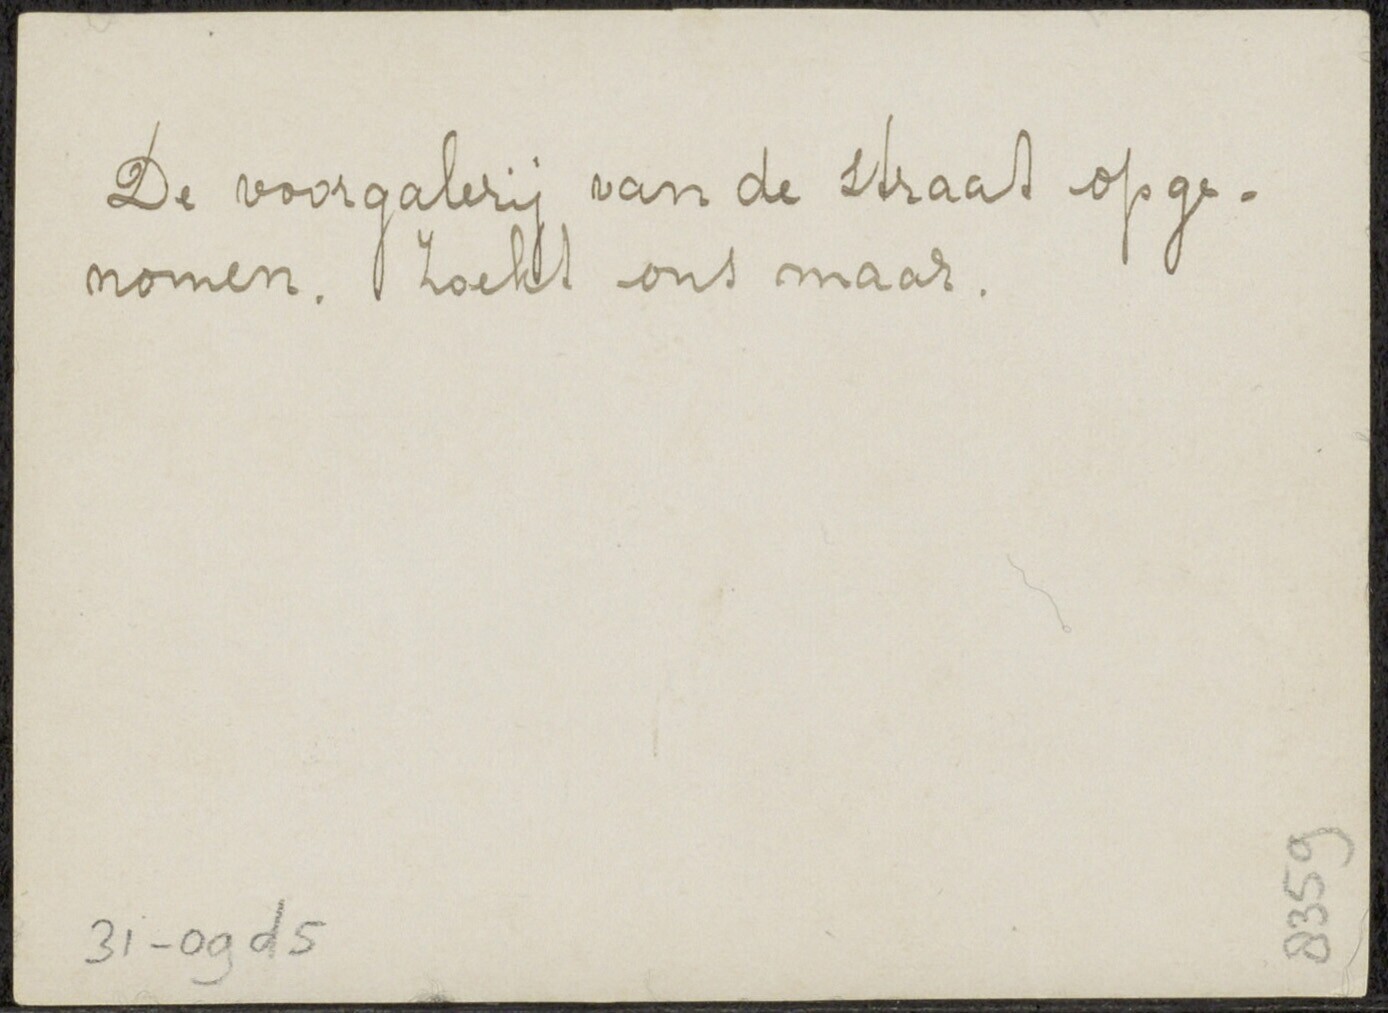 De voorgalerij van de straat opge-
nomen. Zoekt ons maar.
31-09d5
8359